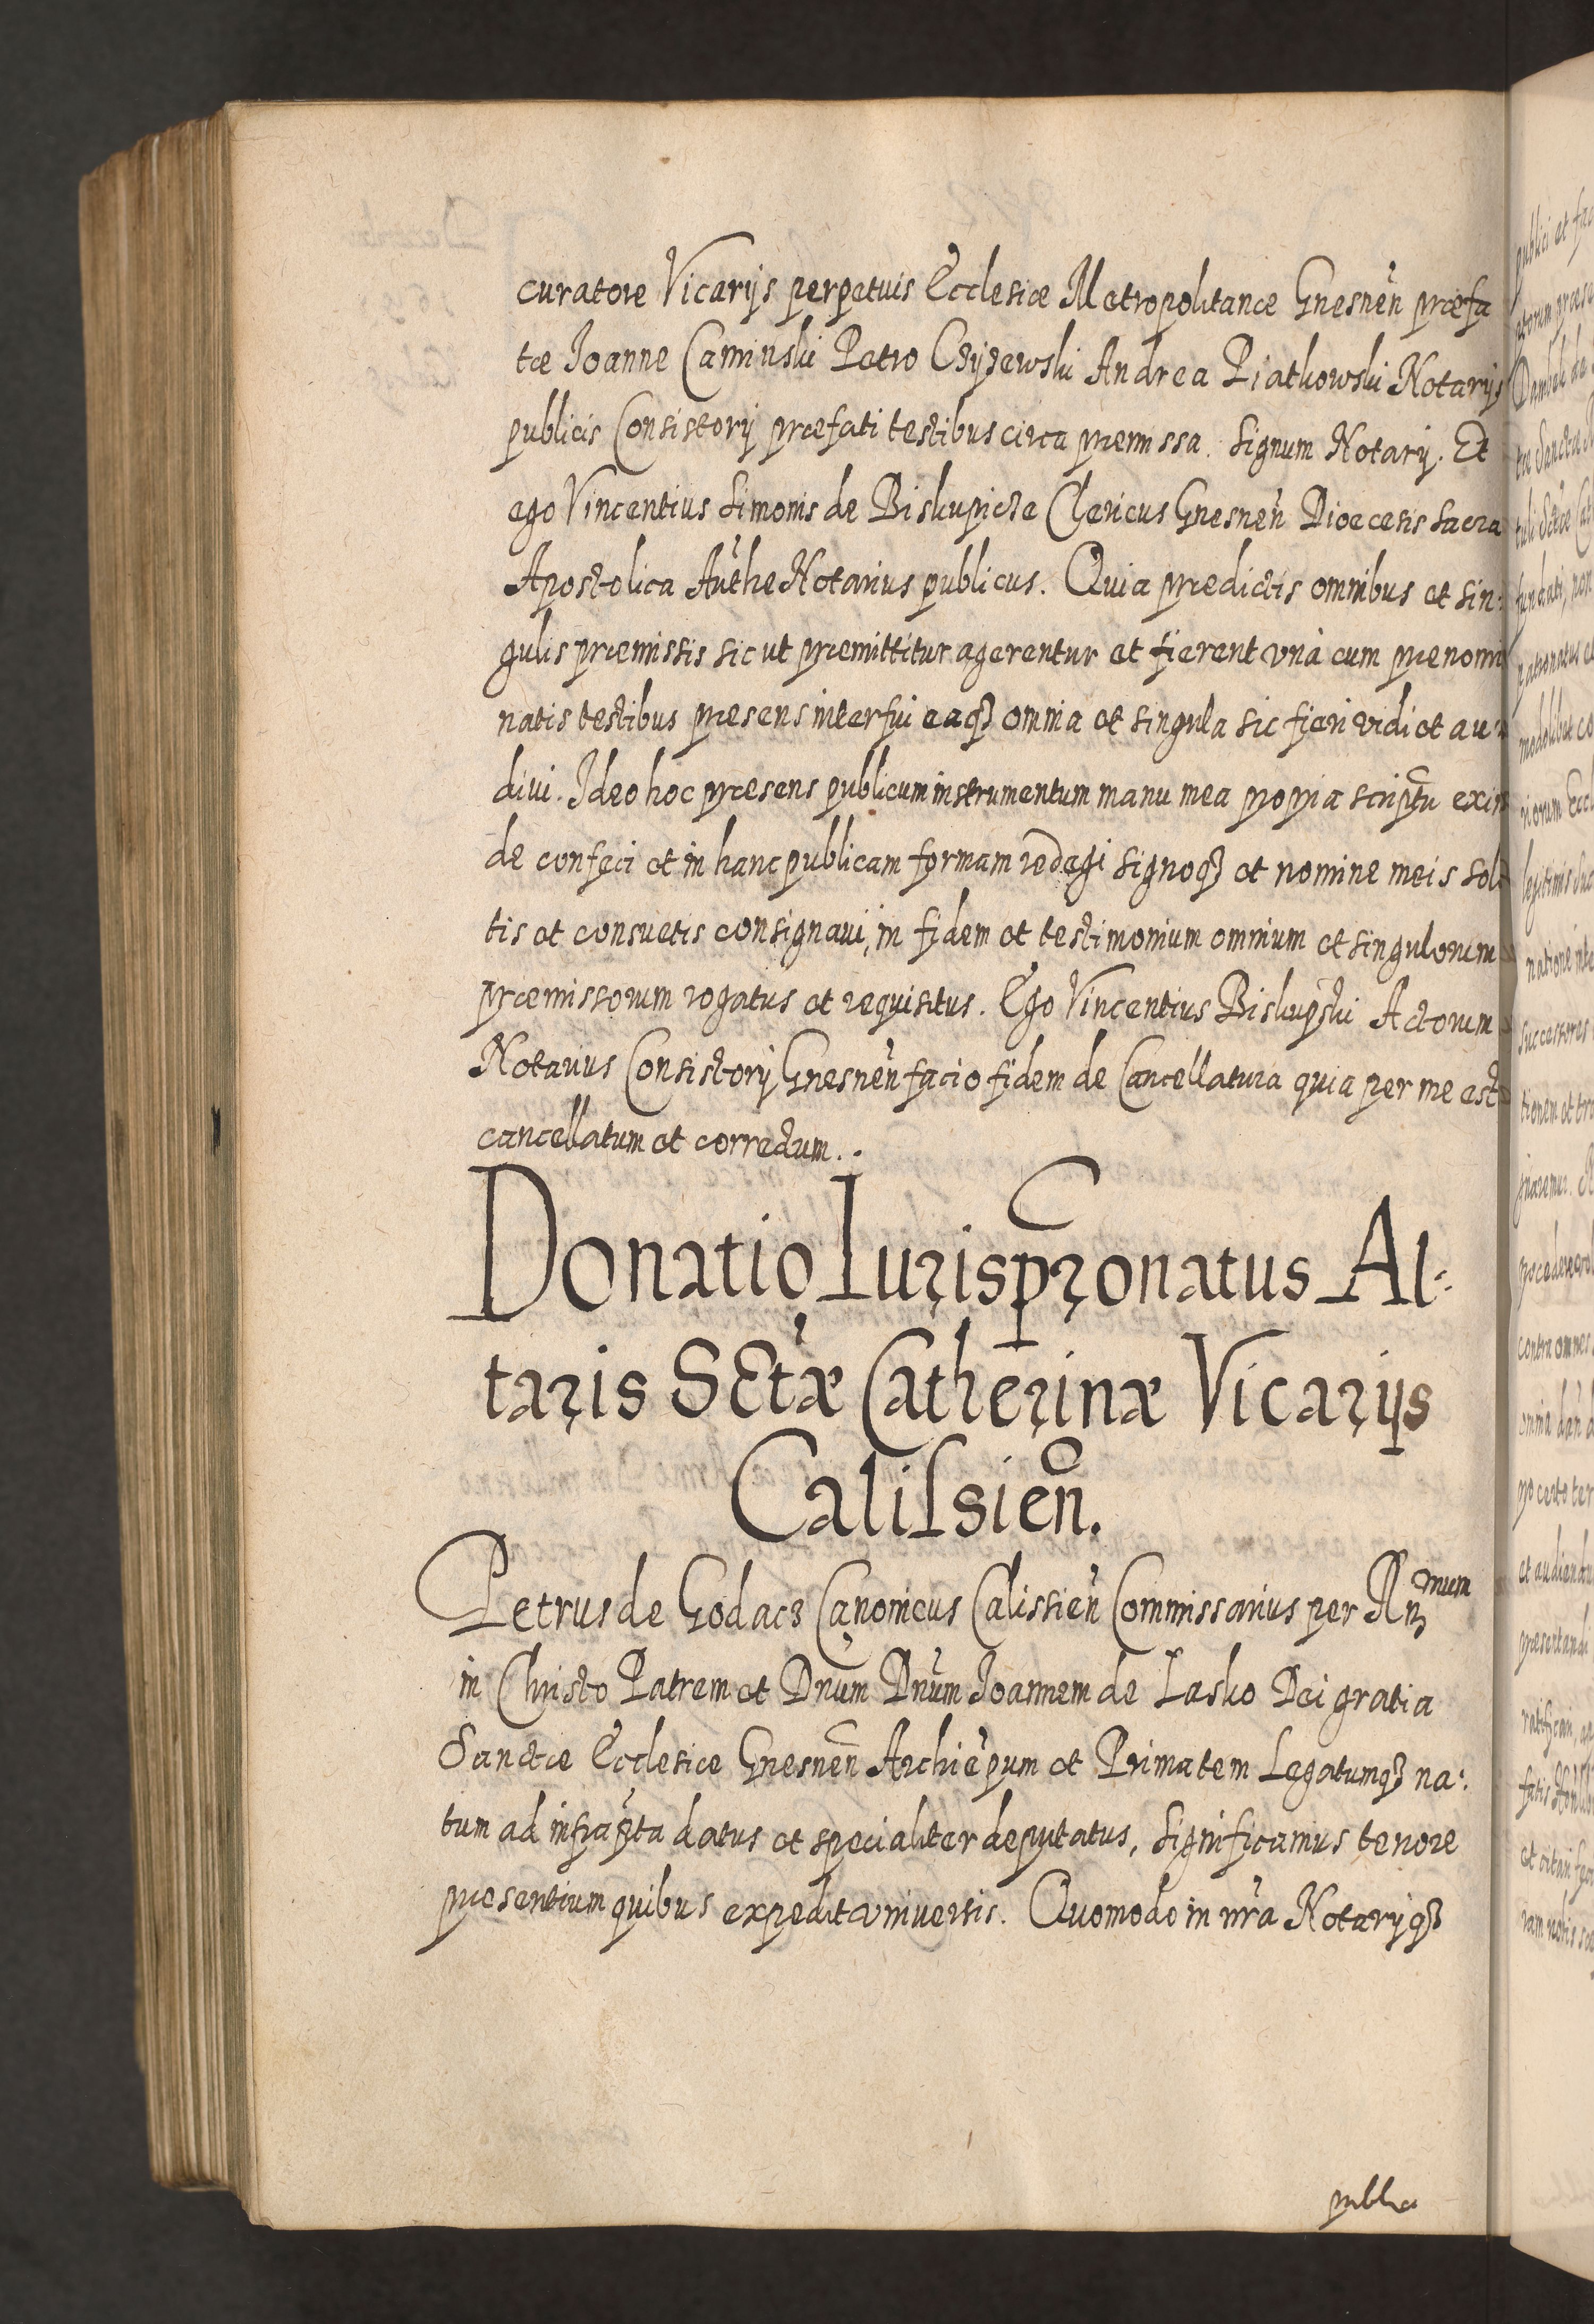 curatore Vicarijs perpetuis Ecclesiæ Metropolitanæ Gnesnen̄ præfa
tæ Joanne Caminski Petro Czyzewski Andrea Piatkowski Notarijs
publicis Consistorij præfati testibus circa præmissa. Signum Notarij. Et
ego Vincentius Simonis de Biskupicze Clericus Gnesnen̄ Dioecesis Sacra
Apostolica Aut̄he Notarius publicus. Quia prædictis omnibus et sin-
gulis præmissis sic ut præmittitur agerentur et fierent vnà cum prænomi
natis testibus præsens interfui eaqꝫ omnia et singula sic fieri vidi et au-
divi. Ideo hoc præsens publicum instrumentum manu mea propria scriptū exin
de confeci et in hanc publicam formam redegi signoqꝫ et nomine meis soli
tis et consuetis consignavi, in fidem et testimonium omnium et singulorum
præmissorum rogatus et requisitus. Ego Vincentius Biskupski Actorum
Notarius Consistorij Gnesnen̄ facio fidem de Cancellatura quia per me est
cancellatum et correctum..
Donatio Jurispr̄onatus Al-
taris Sctæ Catherinæ Vicarijs
Calissien̄.
Petrus de Godacz Canonicus Calissien̄ Commissarius per Rnꝫmum
in Christo Patrem et Dn̄um Dn̄um Joannem de Lasko Dei gratia
Sanctæ Ecclesiæ Gnesnen̄ Archiep̄um et Primatem Legatumqꝫ na-
tum ad infrap̄ta datus et specialiter deputatus, Significamus tenore
præsentium quibus expedit vniversis. Quomodo in nr̄a Notarijqꝫ
publici